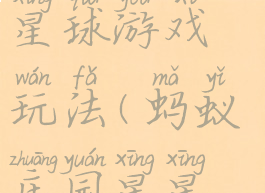 xīng qiú yóu xì
星球游戏
wán fǎ mǎ yǐ
玩法(蚂蚁
zhuāng yuán xīng xīng
庄园星星